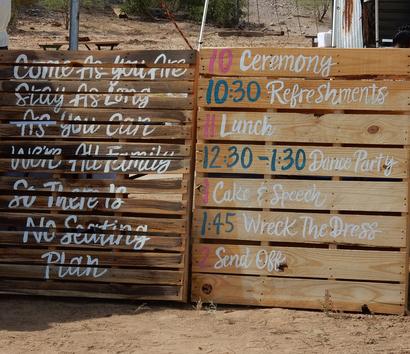 Come As You Are
Stay As Long
As You Can
We're All Family
So There Is
No Seating
Plan
10 Ceremony
10:30 Refreshments
11 Lunch
12:30 - 1:30 Dance Party
1 Cake & Speech
1:45 Wreck The Dress
2 Send Off